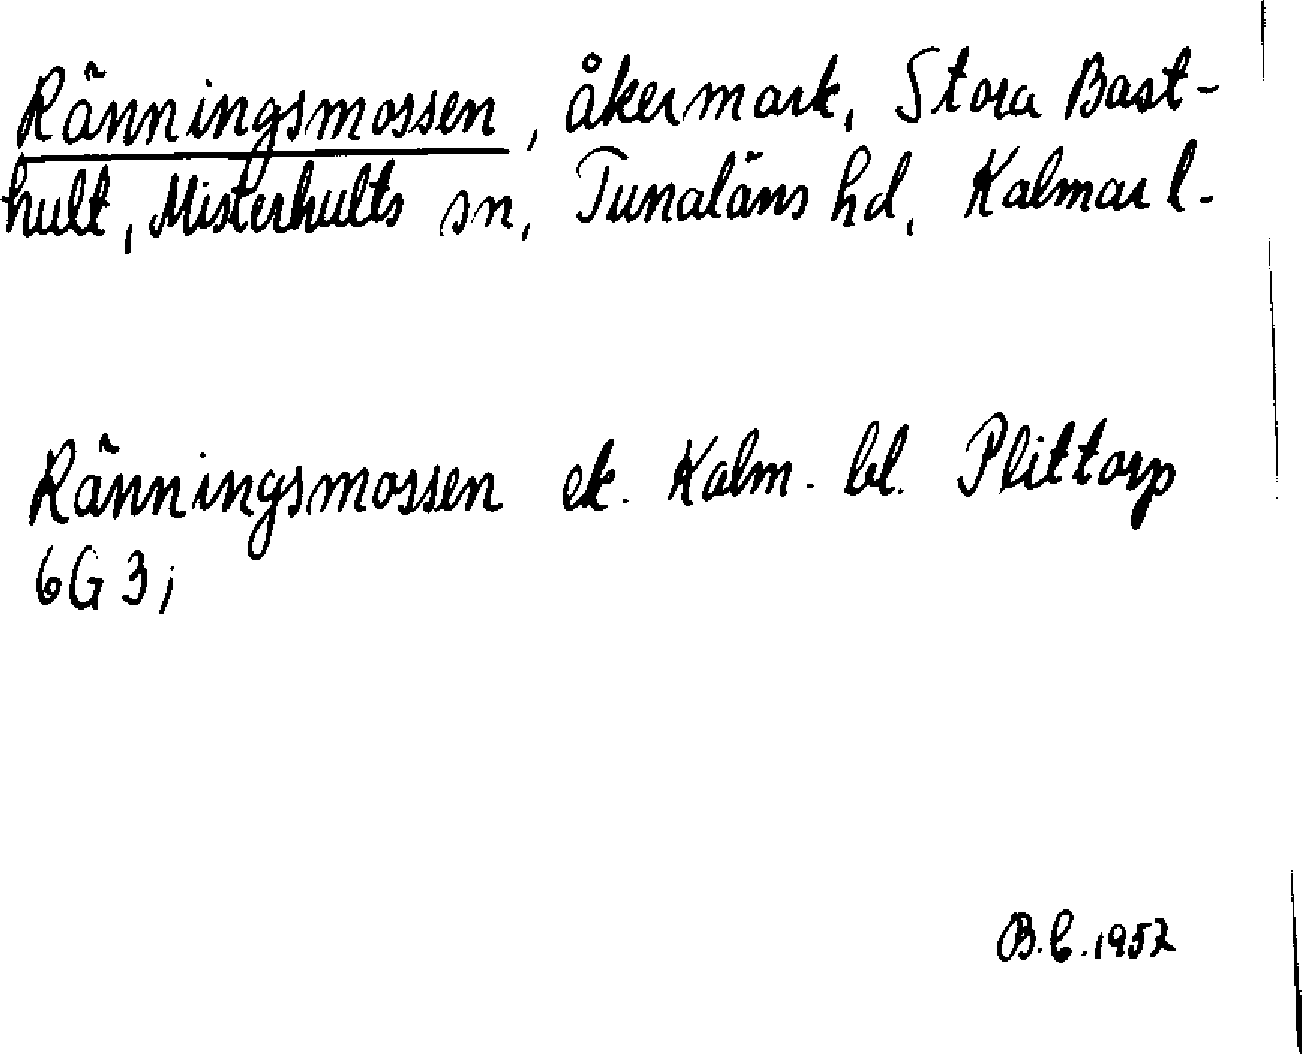 Ränningsmossen, åkermark, Stora Bast-
hult, Misterhults sn, Tunaläns hd, Kalmar l.
Ränningsmossen ek. Kalm. bl. Plittorp
6G 3i
B.C. 1952